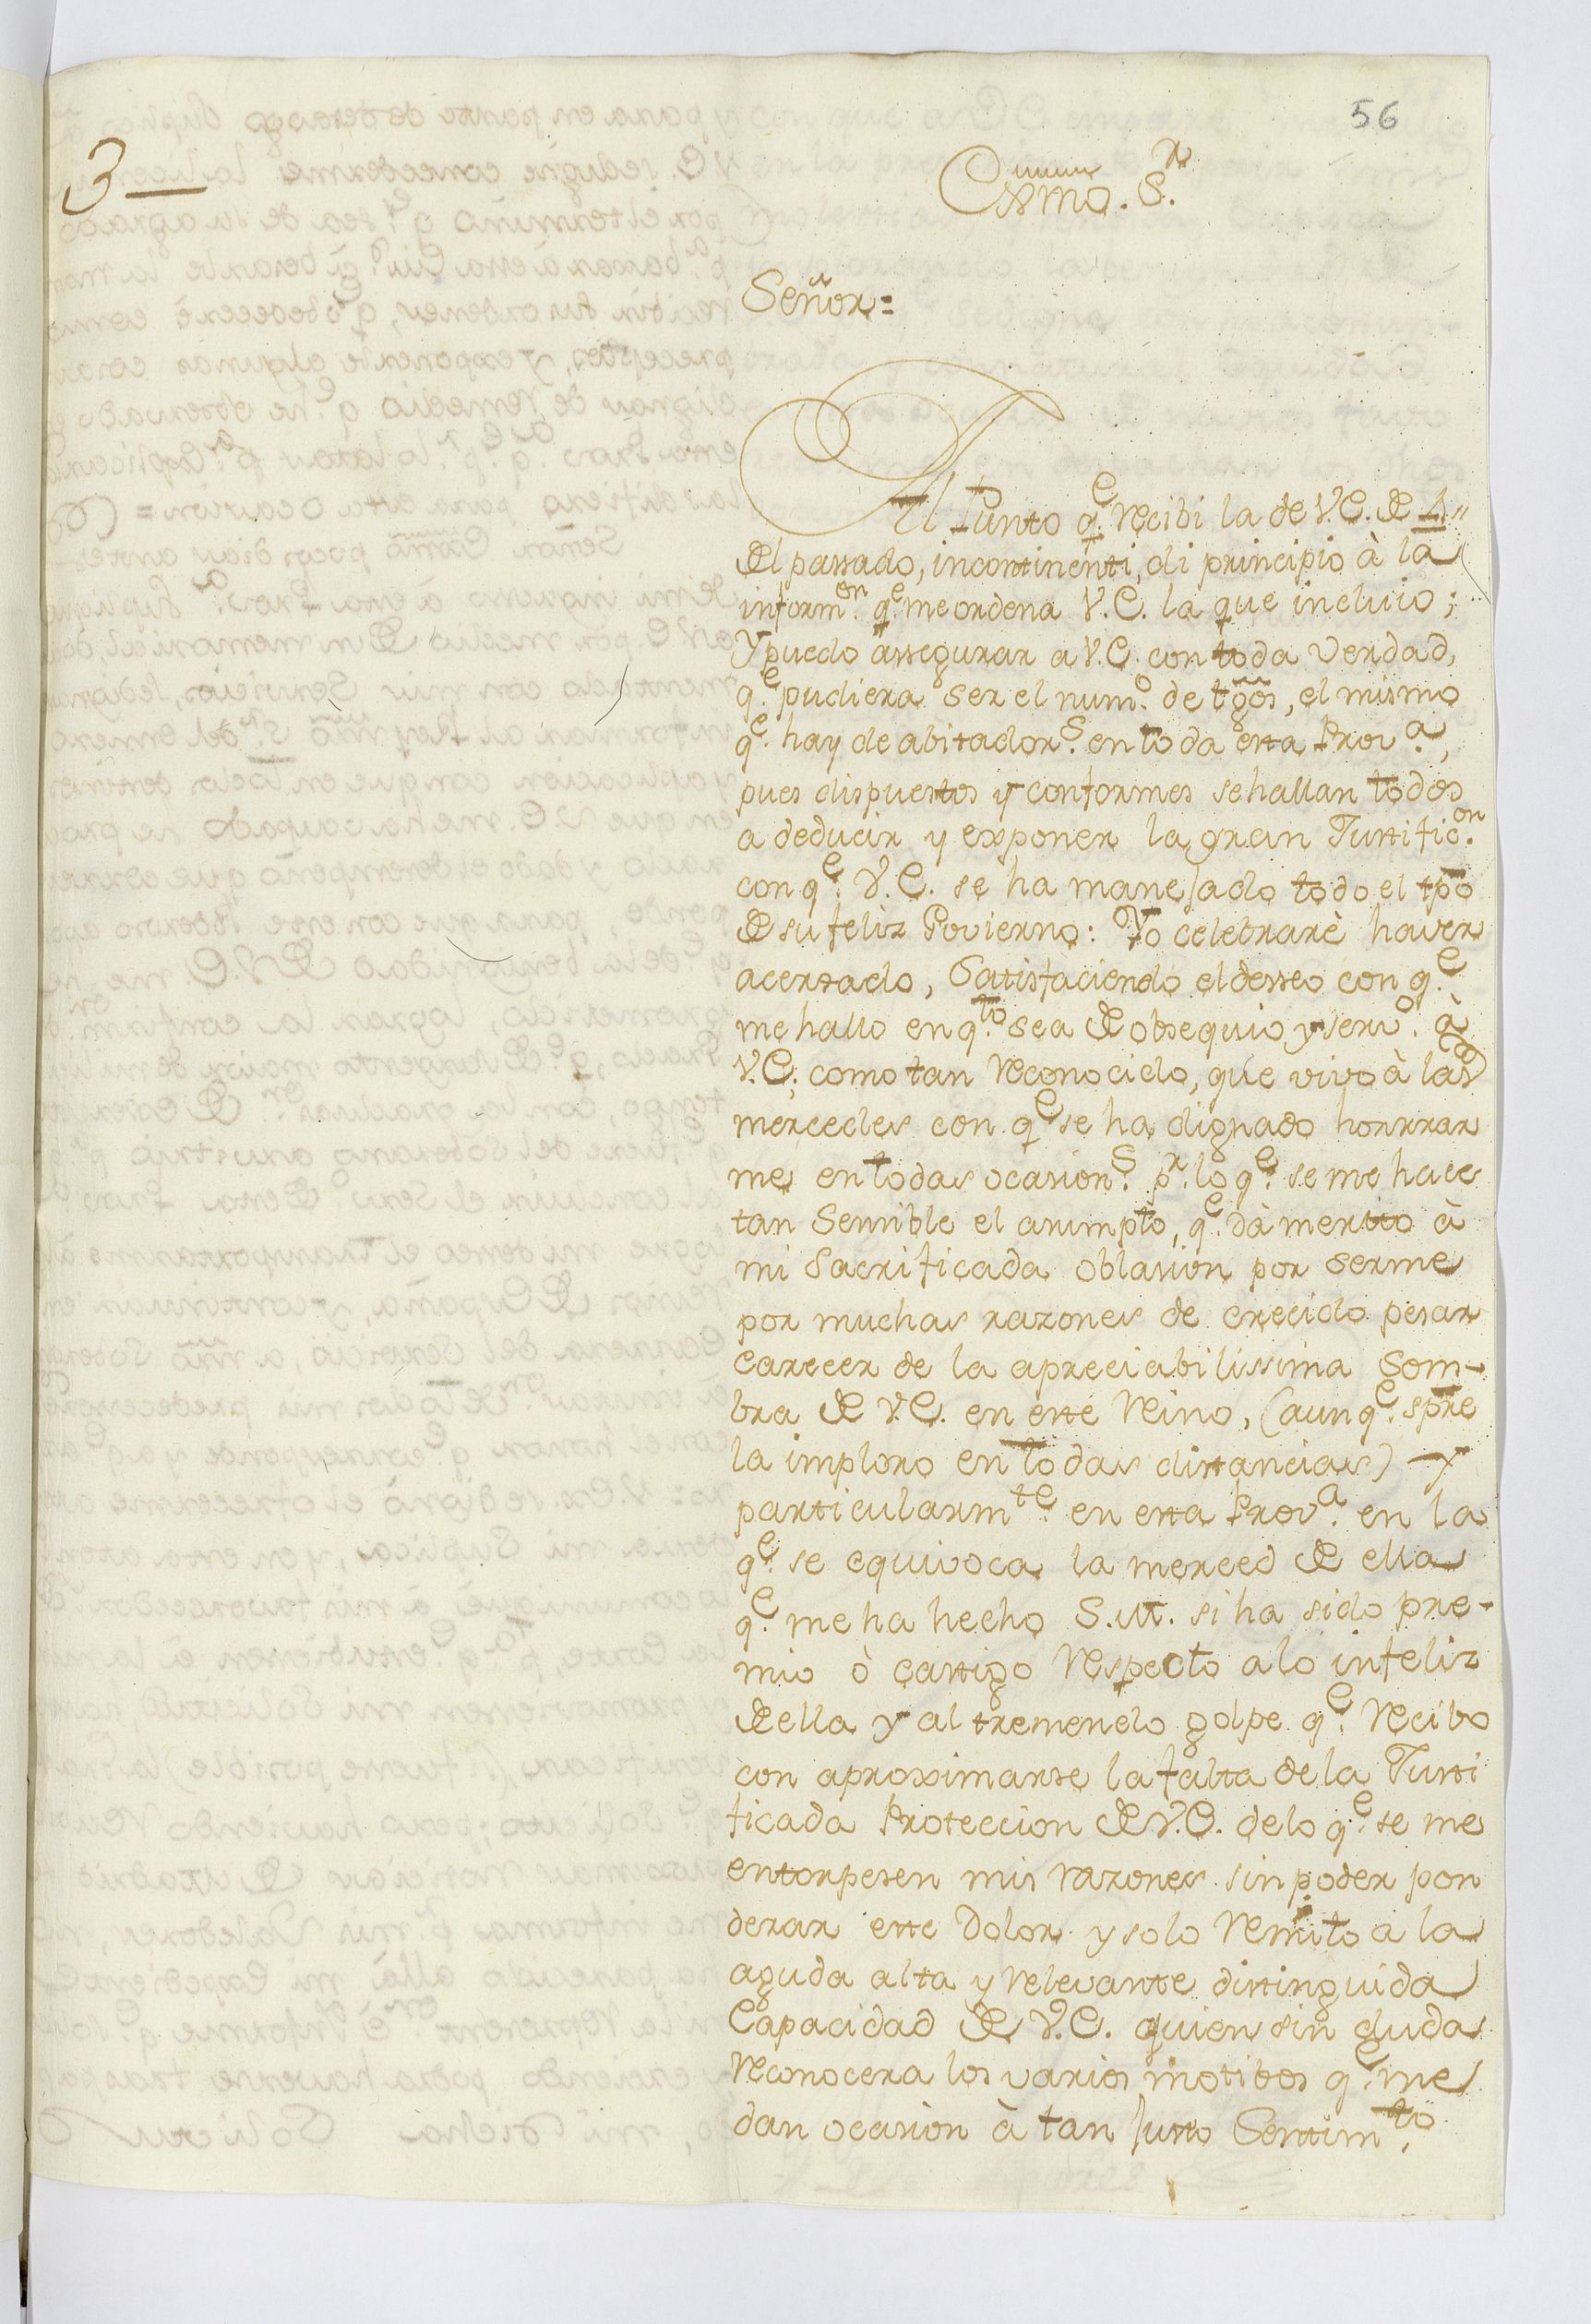 56
3
Exmo. S.r
Señor=
Al Punto q.e recibi la de V.E. de 4,,
del passado, incontinenti, di principio à la
inform.on q.e me ordena V.E. la que incluio;
Y puedo assegurar a V.E. con toda verdad,
q.e pudiera ser el num.o de tg̃os, el mismo
q.e hay de abitador.s en toda esta Prov.a,
pues dispuestos y conformes se hallan todos
a deducir y exponer la gran Justific.on
con q.e V.E. se ha manejado todo el tp̃o
de su feliz Govierno: Yo celebrarè haver
acertado, Satisfaciendo el desseo con q.e
me hallo en q.to sea de obsequio y serv.o à
V.E; como tan reconocido, que vivo à las
mercedes con q.e se ha dignado honrrar
me en todas ocasion.s p.r lo q.e se me hace
tan Sensible el asumpto, q.e dà merito à
mi Sacrificada oblasion por serme
por muchas razones de crecido pesar
carecer de la apreciabilissima Som-
bra de V.E. en este Reino, (aunq.e sp̃re
la imploro en todas distancias) y
particularm.te en esta Prov.a en la
q.e se equivoca la merced de ella
q.e me ha hecho S.M. si ha sido pre-
mio ò castigo respecto a lo infeliz
de ella y al tremendo golpe q.e recibo
con aproximarse la falta de la Justi
ficada Proteccion de V.E. de lo q.e se me
entorpesen mis razones sin poder pon
derar este Dolor y solo remito a la
aguda alta y relevante distinguida
Capacidad de V.E. quien sin duda
reconocera los varios motibos q.e me
dan ocasion à tan justo Sentim.to